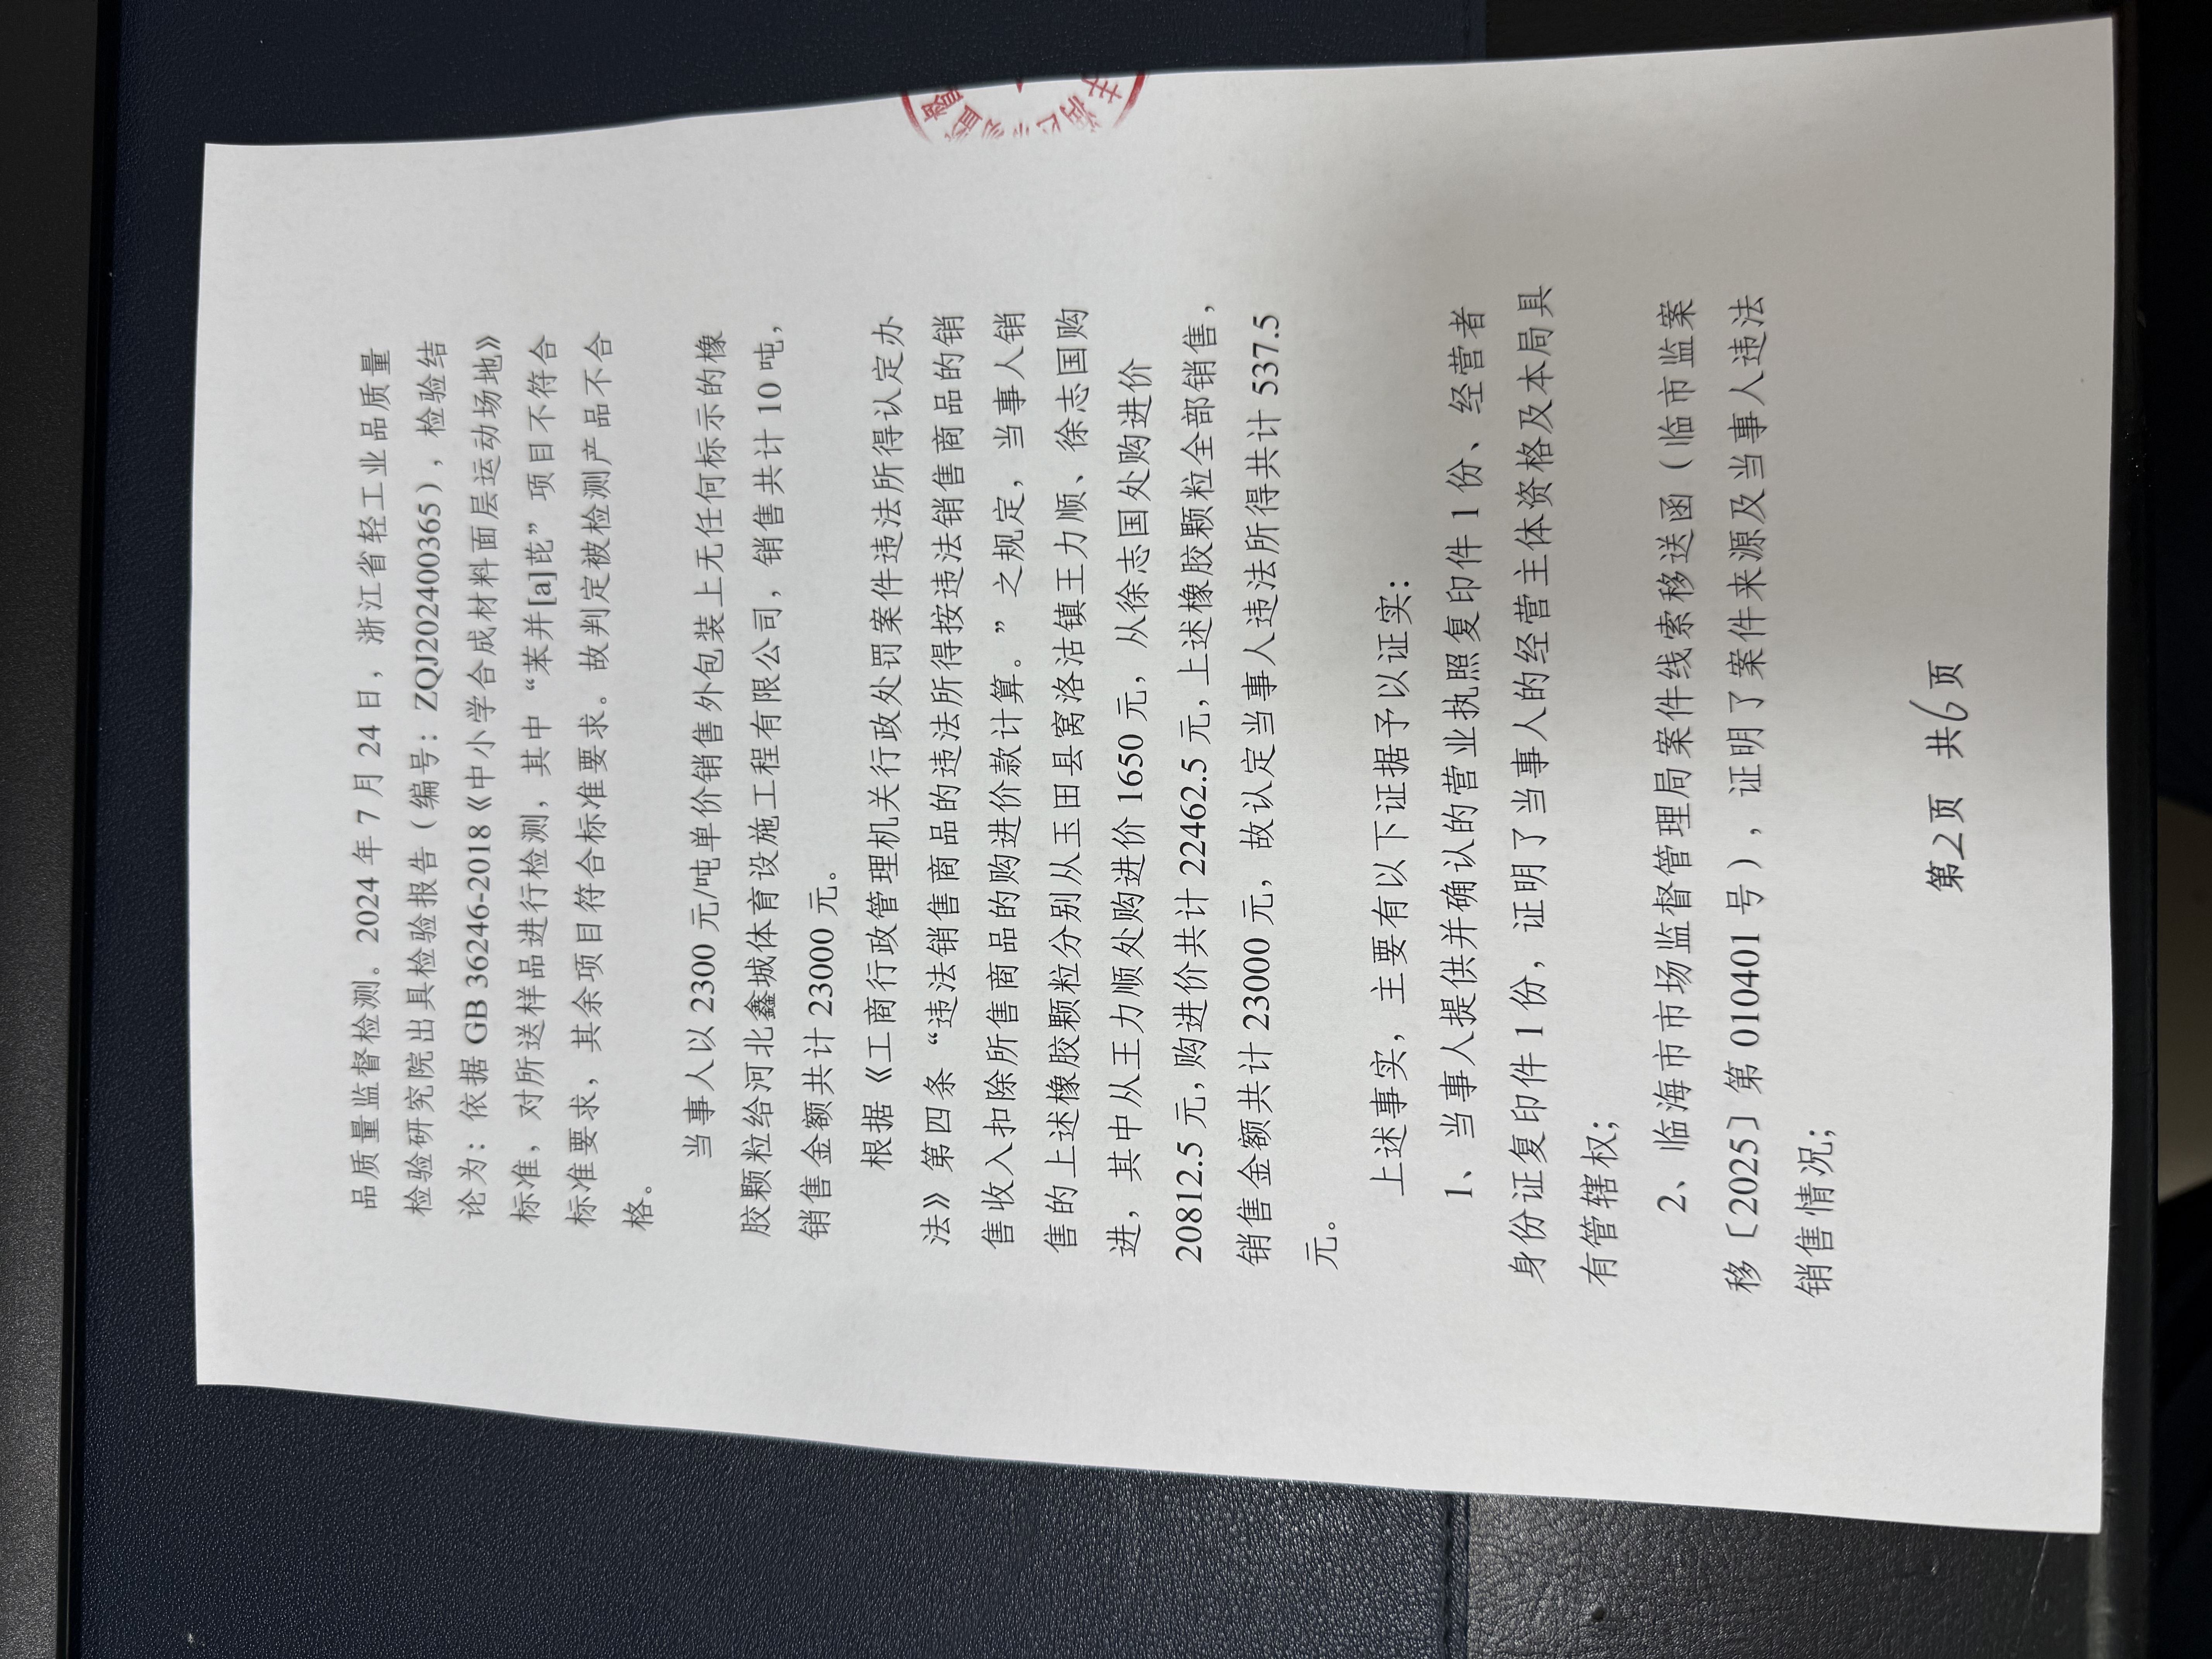 品质量监督检测。2024 年 7 月 24 日，浙江省轻工业品质量
检验研究院出具检验报告（编号：ZQJ202400365），检验结
论为：依据 GB 36246-2018《中小学合成材料面层运动场地》
标准，对所送样品进行检测，其中“苯并[a]芘”项目不符合
标准要求，其余项目符合标准要求。故判定被检测产品不合
格。
当事人以 2300 元/吨单价销售外包装上无任何标示的橡
胶颗粒给河北鑫城体育设施工程有限公司，销售共计 10 吨，
销售金额共计 23000 元。
根据《工商行政管理机关行政处罚案件违法所得认定办
法》第四条“违法销售商品的违法所得按违法销售商品的销
售收入扣除所售商品的购进价款计算。”之规定，当事人销
售的上述橡胶颗粒分别从玉田县窝洛沽镇王力顺、徐志国购
进，其中从王力顺处购进价 1650 元，从徐志国处购进价
20812.5 元，购进价共计 22462.5 元，上述橡胶颗粒全部销售，
销售金额共计 23000 元，故认定当事人违法所得共计 537.5
元。
上述事实，主要有以下证据予以证实：
1、当事人提供并确认的营业执照复印件 1 份、经营者
身份证复印件 1 份，证明了当事人的经营主体资格及本局具
有管辖权；
2、临海市市场监督管理局案件线索移送函（临市监案
移〔2025〕第 010401 号），证明了案件来源及当事人违法
销售情况；
第2页 共6页